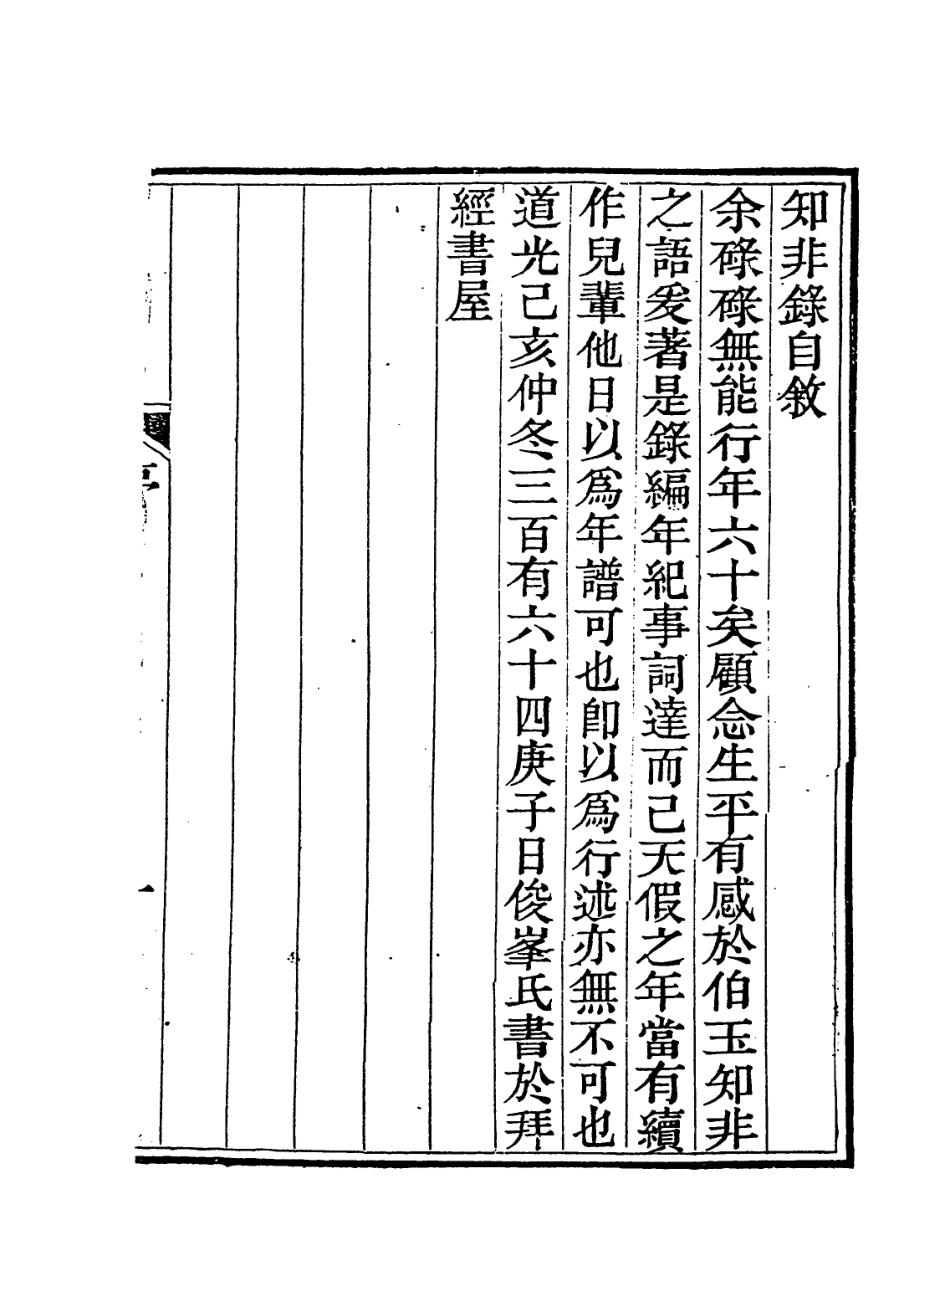 知非錄自敘
余碌碌無能行年六十矣顧念生平有感於伯玉知非
之語爰著是錄編年紀事詞達而已天假之年當有續
作兒輩他日以爲年譜可也卽以爲行述亦無不可也
道光己亥仲冬三百有六十四庚子日俊峯氏書於拜
經書屋